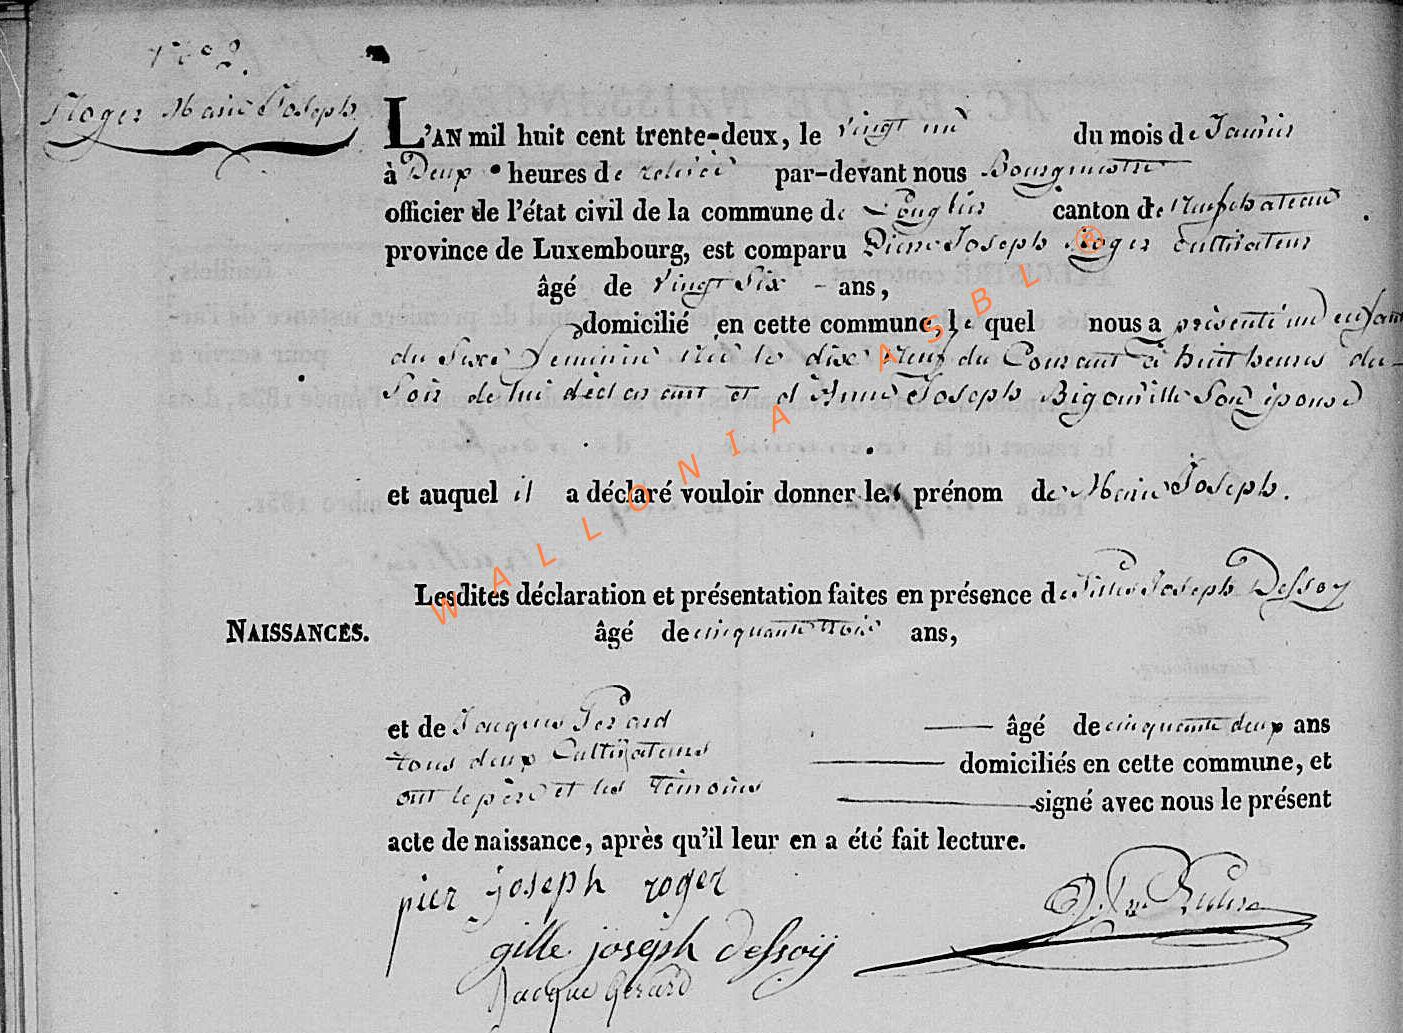 N° 2.
Roger Marie Joseph
L'AN mil huit cent trente-deux, le vingt un du mois de Janvier
à Deux heures de relevée par-devant nous Bourgmestre
officier de l'état civil de la commune de Longlier canton de Neufchateau
province de Luxembourg, est comparu Pierre Joseph Roger Cultivateur
âgé de vingt Six ans,
domicilié en cette commune, le quel nous a présenté un enfant
du Sexe Feminin née le dix neuf du Courant à huit heures du
Soir de lui déclarant et d'Anne Joseph Bigonville Son épouse
et auquel il a déclaré vouloir donner les prénom de Marie Joseph.
Lesdites déclaration et présentation faites en présence de Gille Joseph Dessoy
NAISSANCES. âgé de cinquante trois ans,
et de Jacques Gerard âgé de cinquante deux ans
tous deux Cultivateurs domiciliés en cette commune, et
ont le père et les Témoins signé avec nous le présent
acte de naissance, après qu'il leur en a été fait lecture.
pier joseph roger
gille joseph dessoÿ
Jacque Gerard
WALLONIA ASBL ®